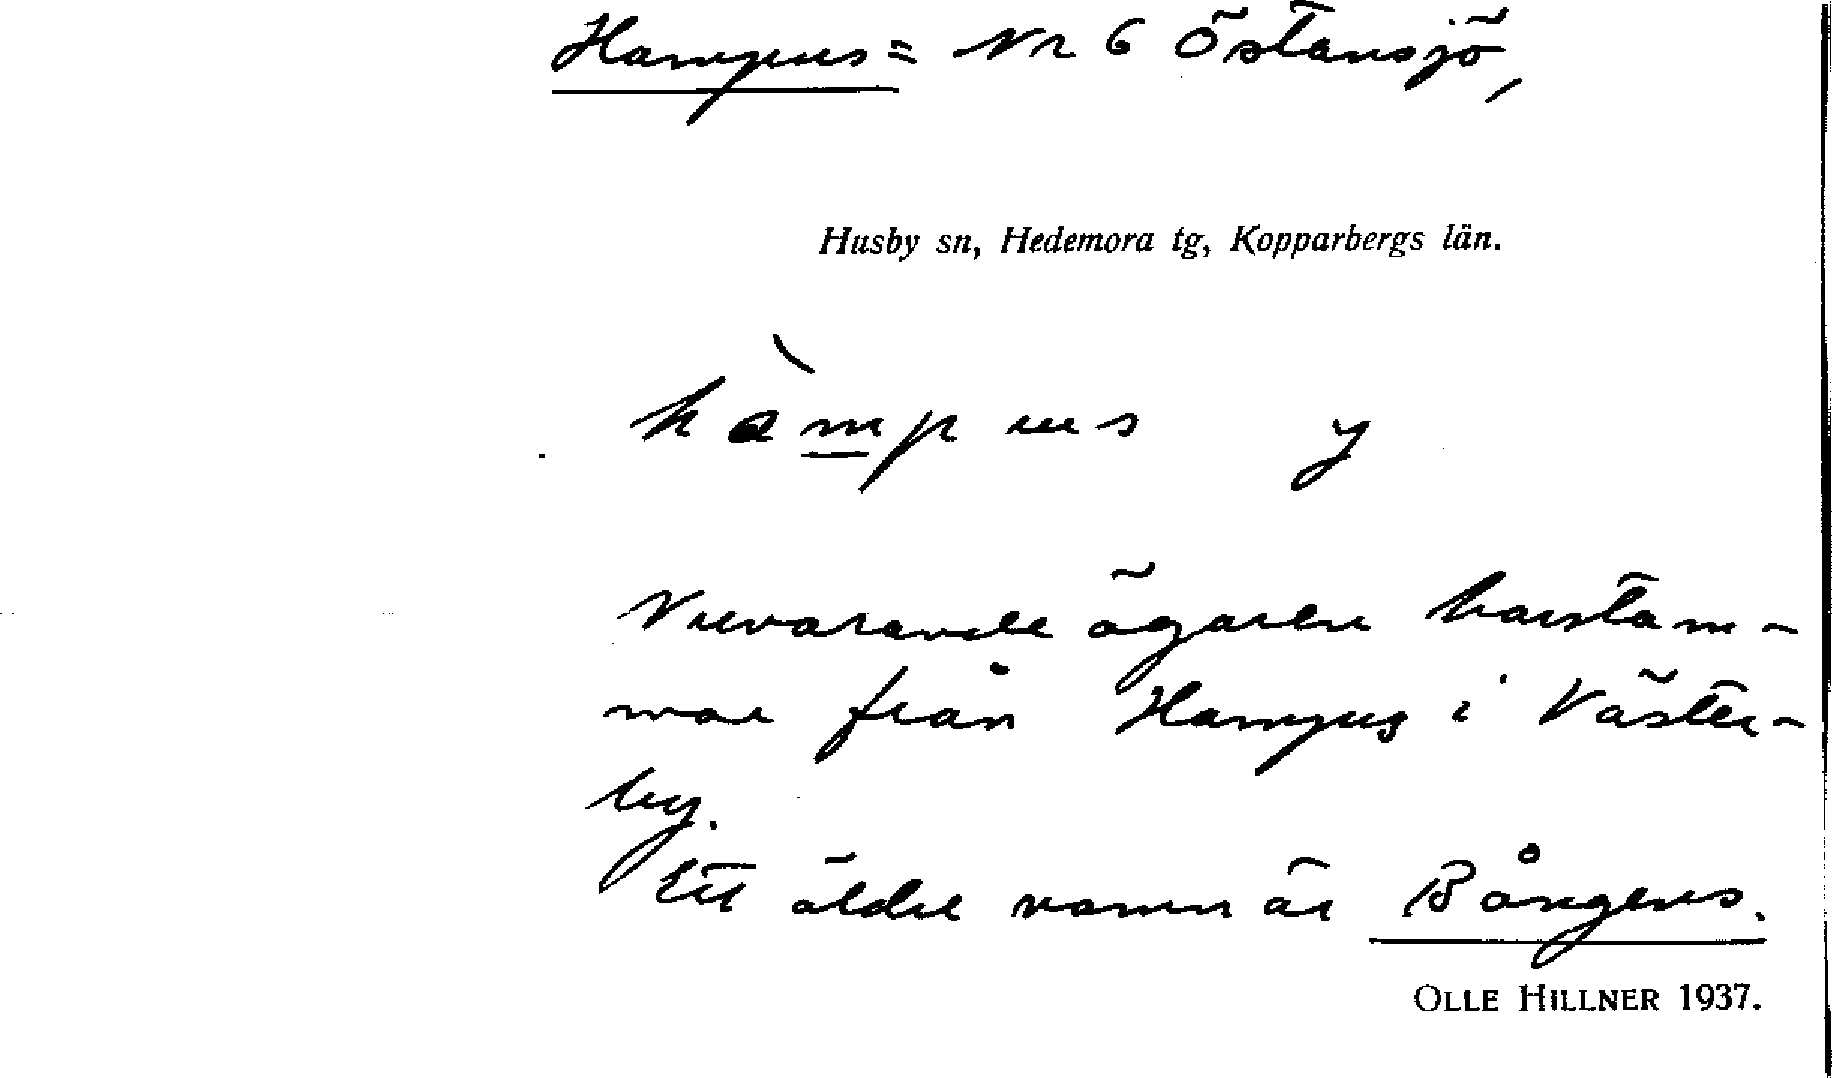 Hampus = Nr 6 Östansjö,
Husby sn, Hedemora tg, Kopparbergs län.
hàmpus y
Nuvarande ägaren härstam-
mar från Hampus i Väster-
by.
Ett äldre namn är Bångens.
OLLE HILLNER 1937.